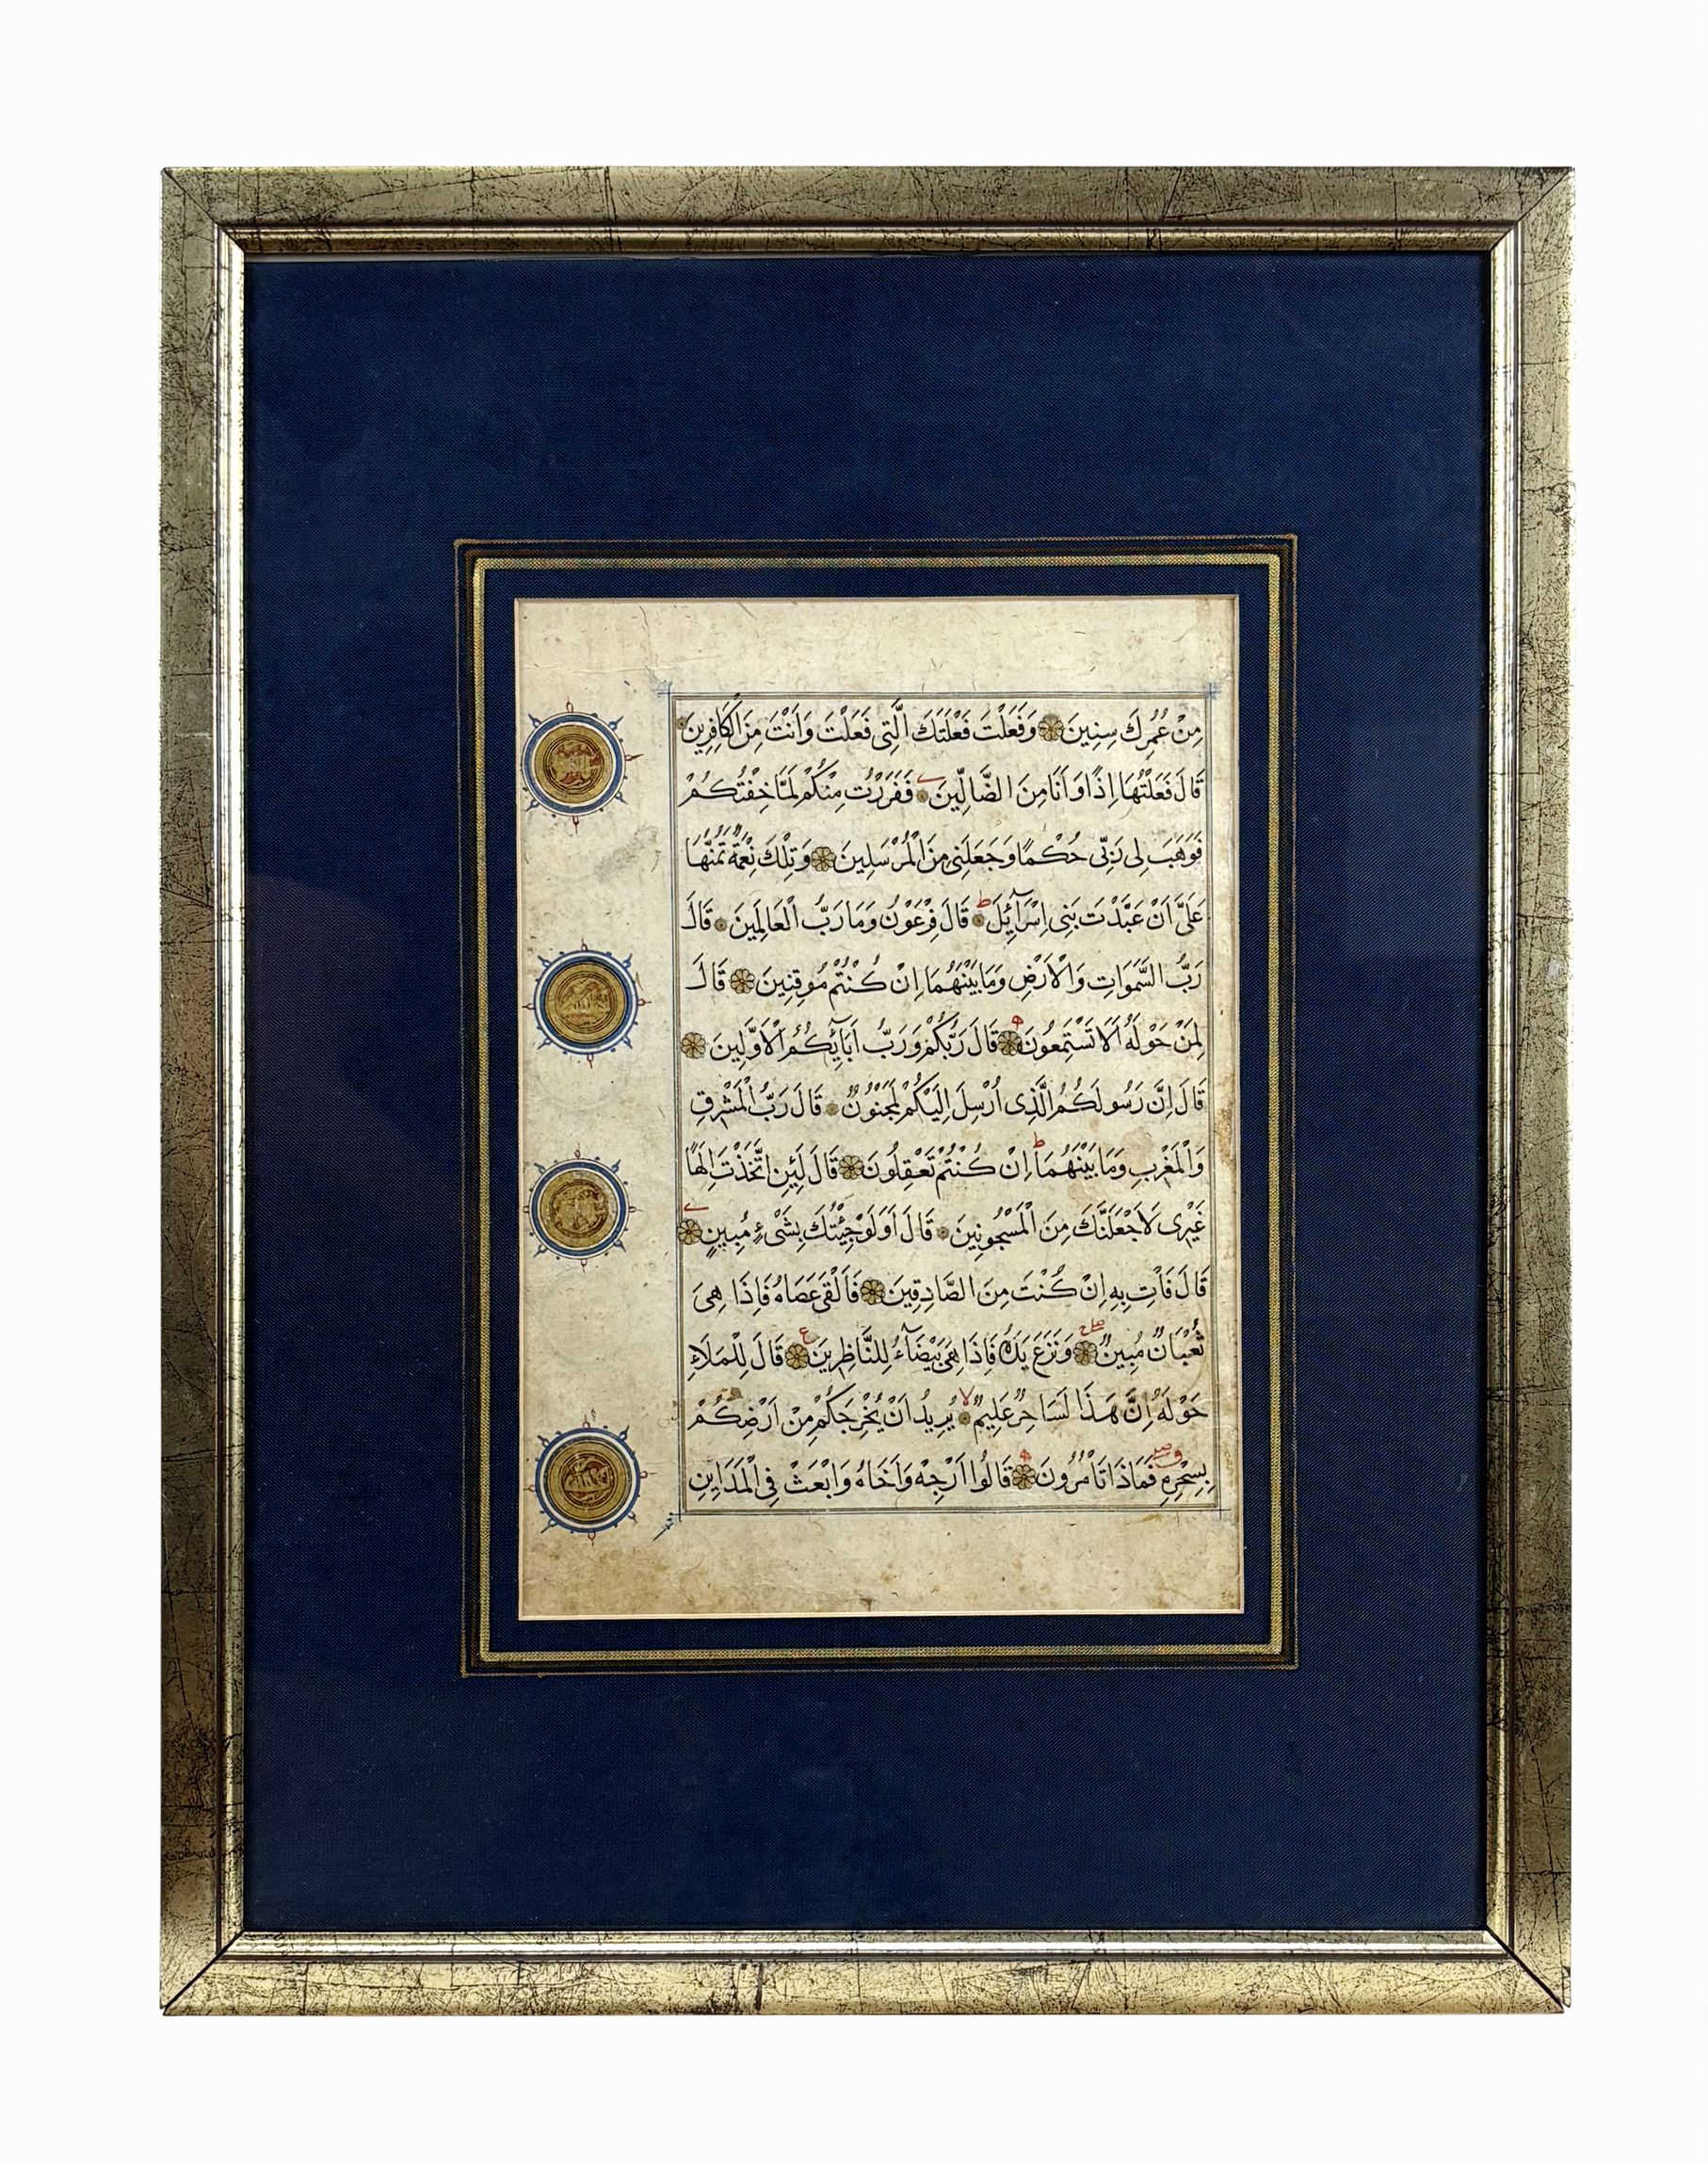 مِنْ عُمُرِكَ سِنِينَ وَفَعَلْتَ فَعْلَتَكَ الَّتِي فَعَلْتَ وَاَنْتَ مِنَ الْكَافِرِينَ
قَالَ فَعَلْتُهَا اِذًا وَاَنَا مِنَ الضَّالِّينَ فَفَرَرْتُ مِنْكُمْ لَمَّا خِفْتُكُمْ
فَوَهَبَ لِي رَبِّي حُكْمًا وَجَعَلَنِي مِنَ الْمُرْسَلِينَ وَتِلْكَ نِعْمَةٌ تَمُنُّهَا
عَلَيَّ اَنْ عَبَّدْتَ بَنِي اِسْرَآئِلَ قَالَ فِرْعَوْنُ وَمَا رَبُّ الْعَالَمِينَ قَالَ
رَبُّ السَّمَوَاتِ وَالْاَرْضِ وَمَا بَيْنَهُمَا اِنْ كُنْتُمْ مُوقِنِينَ قَالَ
لِمَنْ حَوْلَهُ اَلَا تَسْتَمِعُونَ قَالَ رَبُّكُمْ وَرَبُّ اٰبَآئِكُمُ الْاَوَّلِينَ
قَالَ اِنَّ رَسُولَكُمُ الَّذِي اُرْسِلَ اِلَيْكُمْ لَمَجْنُونٌ قَالَ رَبُّ الْمَشْرِقِ
وَالْمَغْرِبِ وَمَا بَيْنَهُمَا اِنْ كُنْتُمْ تَعْقِلُونَ قَالَ لَئِنِ اتَّخَذْتَ اِلٰهًا
غَيْرِي لَاَجْعَلَنَّكَ مِنَ الْمَسْجُونِينَ قَالَ اَوَلَوْ جِئْتُكَ بِشَيْءٍ مُبِينٍ
قَالَ فَأْتِ بِهِ اِنْ كُنْتَ مِنَ الصَّادِقِينَ فَاَلْقَى عَصَاهُ فَاِذَا هِيَ
ثُعْبَانٌ مُبِينٌ وَنَزَعَ يَدَهُ فَاِذَا هِيَ بَيْضَآءُ لِلنَّاظِرِينَ قَالَ لِلْمَلَاءِ
حَوْلَهُ اِنَّ هَذَا لَسَاحِرٌ عَلِيمٌ يُرِيدُ اَنْ يُخْرِجَكُمْ مِنْ اَرْضِكُمْ
بِسِحْرِهِ فَمَاذَا تَأْمُرُونَ قَالُوا اَرْجِهْ وَاَخَاهُ وَابْعَثْ فِي الْمَدَايِنِ